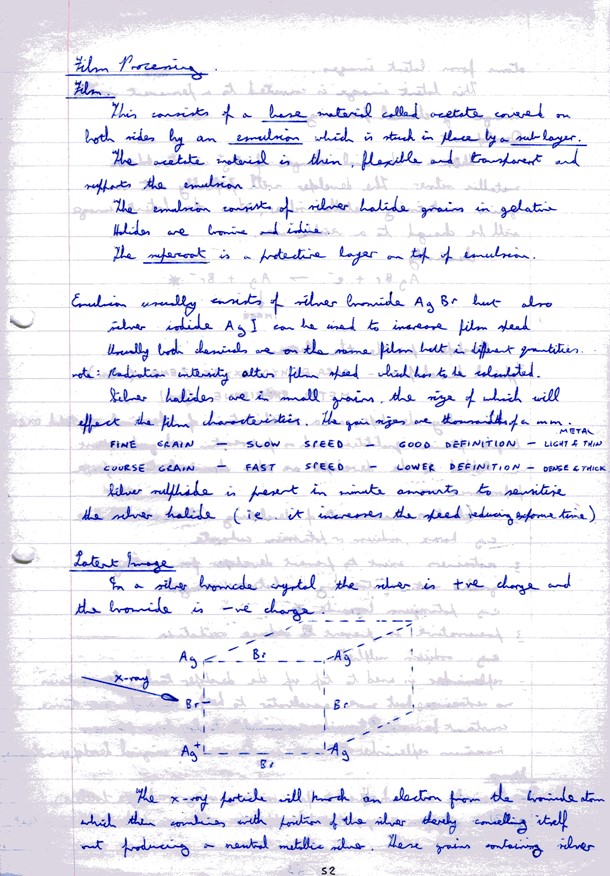 Film Processing.
Film.
This consists of a base material called acetate covered on
both sides by an emulsion which is stuck in place by a sub layer.
The acetate material is thin, flexible and transparent and
supports the emulsion.
The emulsion consists of silver halide grains in gelatine
Halides are bromine and iodine.
The supercoat is a protective layer on top of emulsion.
Emulsion usually consists of silver bromide AgBr but also
silver iodide AgI can be used to increase film speed
Usually both chemicals are on the same film but in different quantities.
note: Radiation intensity alters film speed which has to be calculated.
Silver halides are in small grains, the size of which will
effect the film characteristics. The grain sizes are thousandths of a mm.
METAL
FINE GRAIN — SLOW SPEED — GOOD DEFINITION — LIGHT & THIN
COURSE GRAIN — FAST SPEED — LOWER DEFINITION — DENSE & THICK
Silver sulphide is present in minute amounts to sensitise
the silver halide (i.e. it increases the speed reducing exposure time)
Latent Image
In a silver bromide crystal the silver is +ve charge and
the bromide is -ve charge.
Ag Br Ag
x-ray
Br Br
Ag+ Ag
Br
The x-ray particle will knock an electron from the bromide atom
which then combines with portion of the silver thereby cancelling itself
out producing a neutral metallic silver. These grains containing silver
52